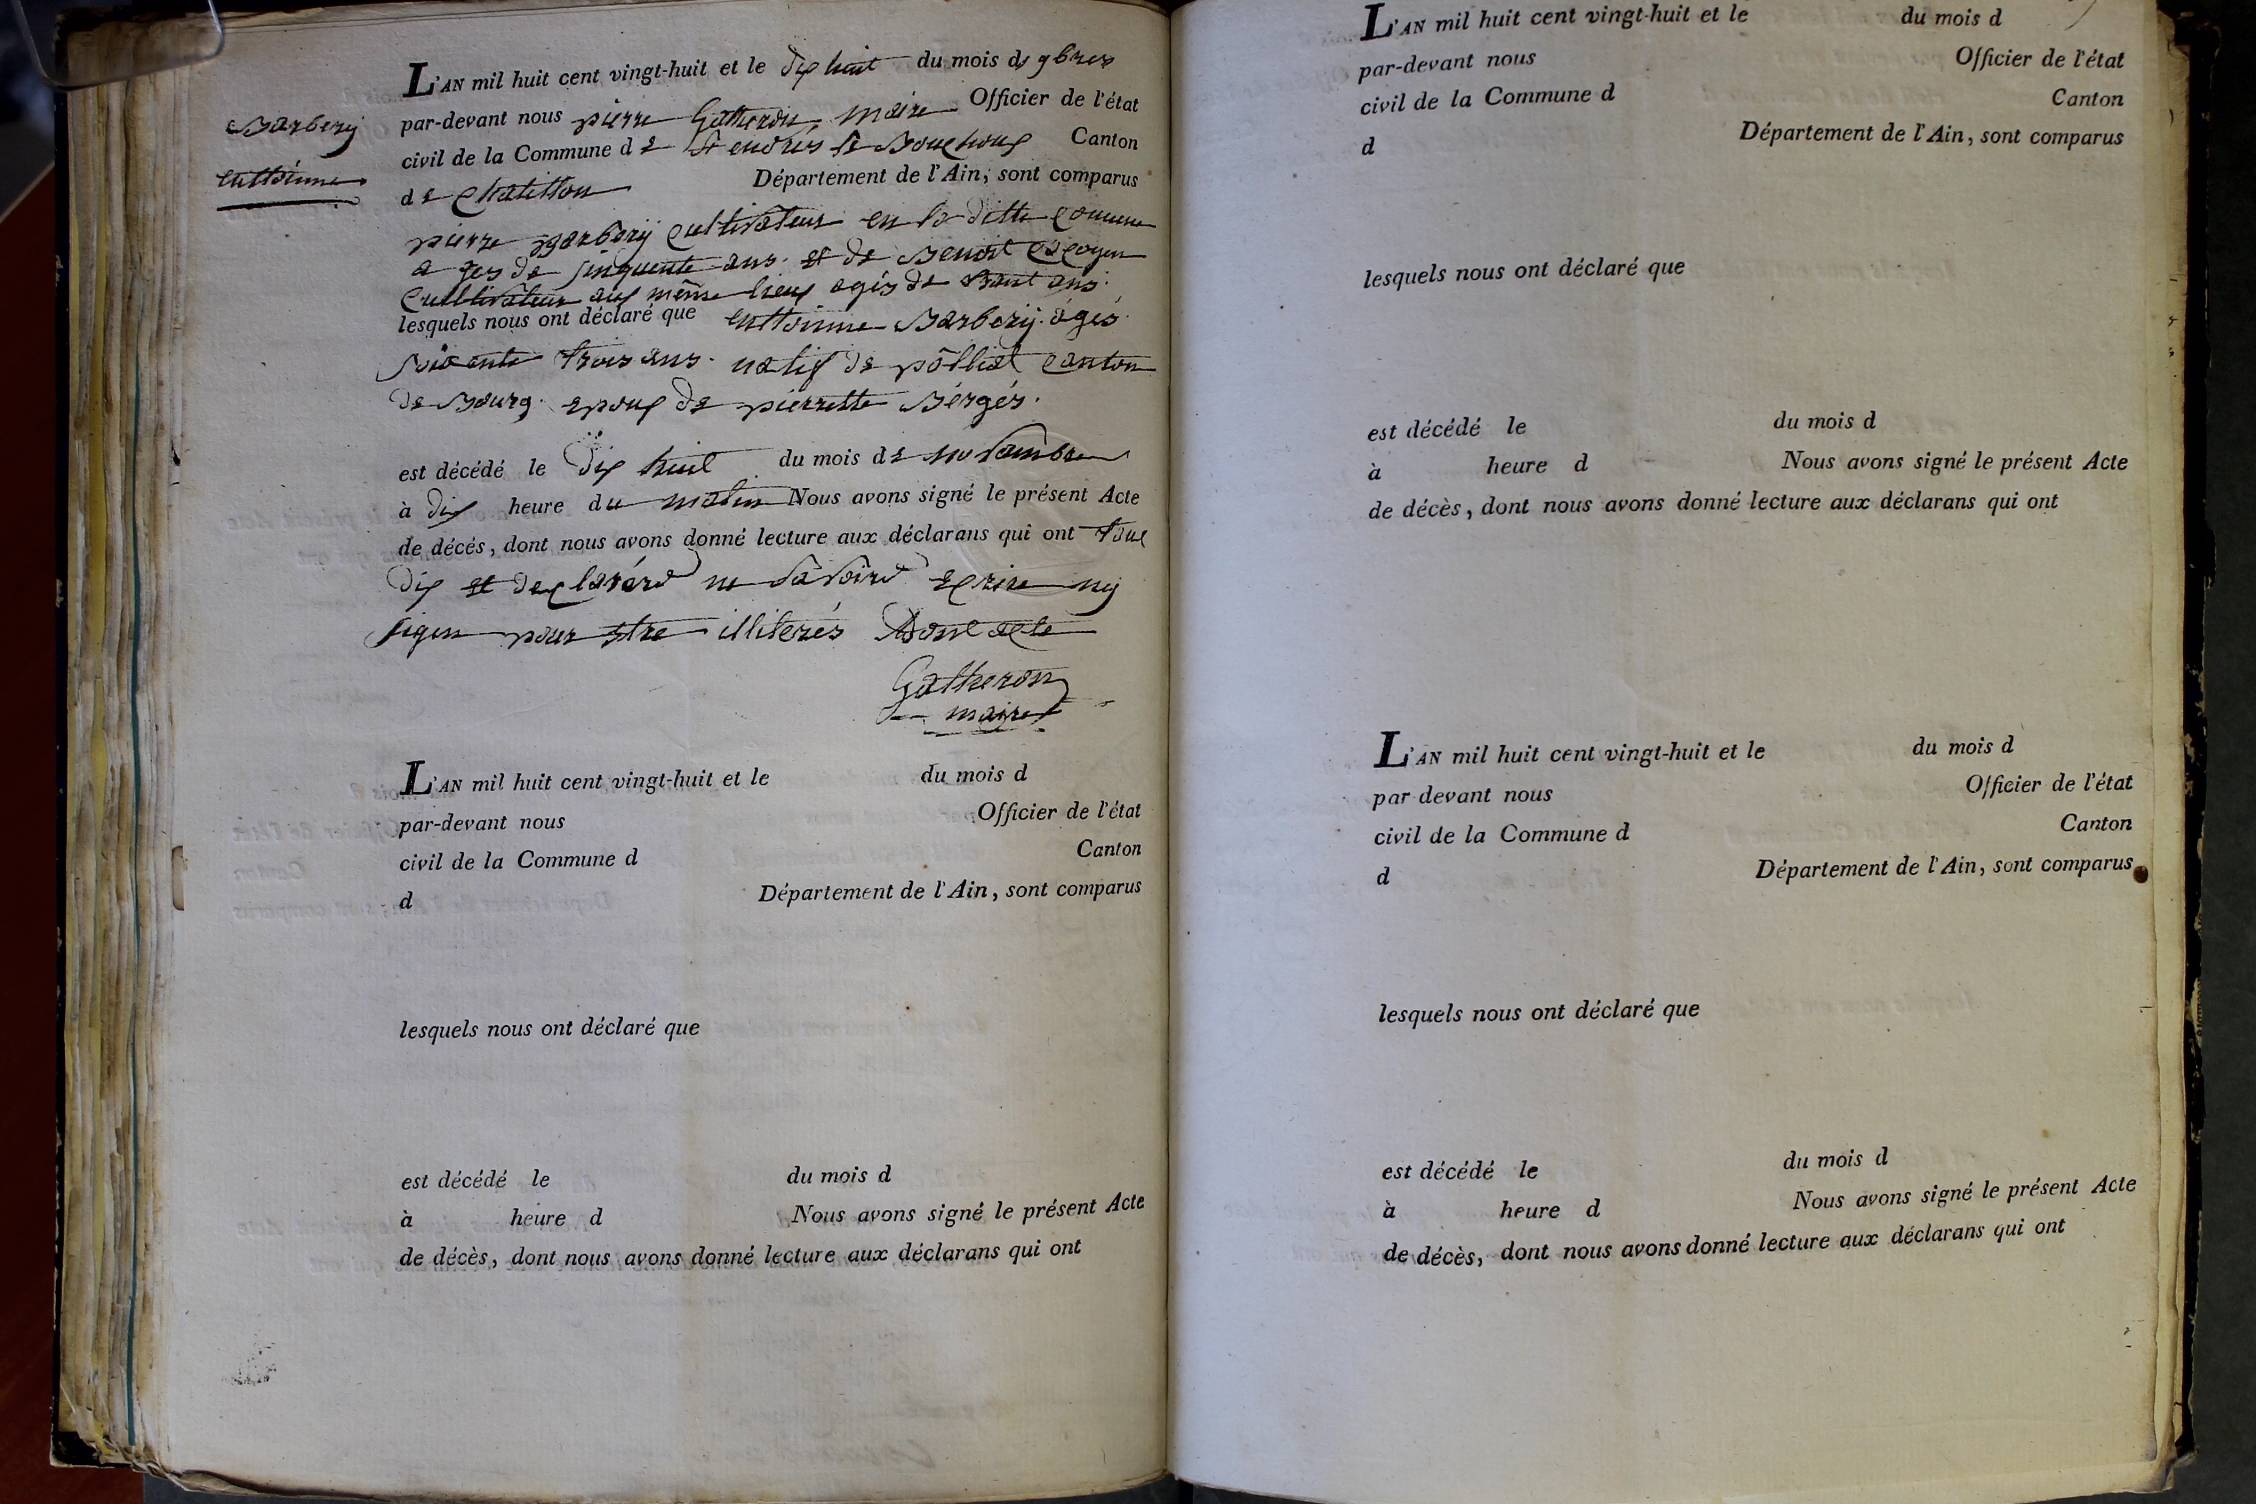 Barbery
enttoinne
L'AN mil huit cent vingt-huit et le dix huit du mois d 9bres
par-devant nous pierre Gatheron, maire Officier de l'état
civil de la Commune de St endres le Bouchoux Canton
de Chatillon Département de l'Ain, sont comparus
pierre Barbery Cultivateur en la ditte Commune
a ges de sinquente ans. et de Benoit
Cultivateur aux même lieux agés de ans.
lesquels nous ont déclaré que enttoinne Barbery. ágés.
soixante trois ans. natif de pólliat Canton
de Bourg. epoux de pierrette Bérgér.
est décédé le dix huit du mois de novambre
à dix heure du matin Nous avons signé le présent Acte
de décés, dont nous avons donné lecture aux déclarans qui ont tout
dix et dexclaréré ne savoire Exrire ny
signe pour etre illiterés Dont acte
Gatheron
maire
L'AN mil huit cent vingt-huit et le du mois d
par-devant nous Officier de l'état
civil de la Commune d Canton
d Département de l'Ain, sont comparus
lesquels nous ont déclaré que
est décédé le du mois d
à heure d Nous avons signé le présent Acte
de décès, dont nous avons donné lecture aux déclarans qui ont
L'AN mil huit cent vingt-huit et le du mois d
par-devant nous Officier de l'état
civil de la Commune d Canton
d Département de l'Ain, sont comparus
lesquels nous ont déclaré que
est décédé le du mois d
à heure d Nous avons signé le présent Acte
de décès, dont nous avons donné lecture aux déclarans qui ont
L'AN mil huit cent vingt-huit et le du mois d
par devant nous Officier de l'état
civil de la Commune d Canton
d Département de l'Ain, sont comparus
lesquels nous ont déclaré que
est décédé le du mois d
à heure d Nous avons signé le présent Acte
de décès, dont nous avons donné lecture aux déclarans qui ont